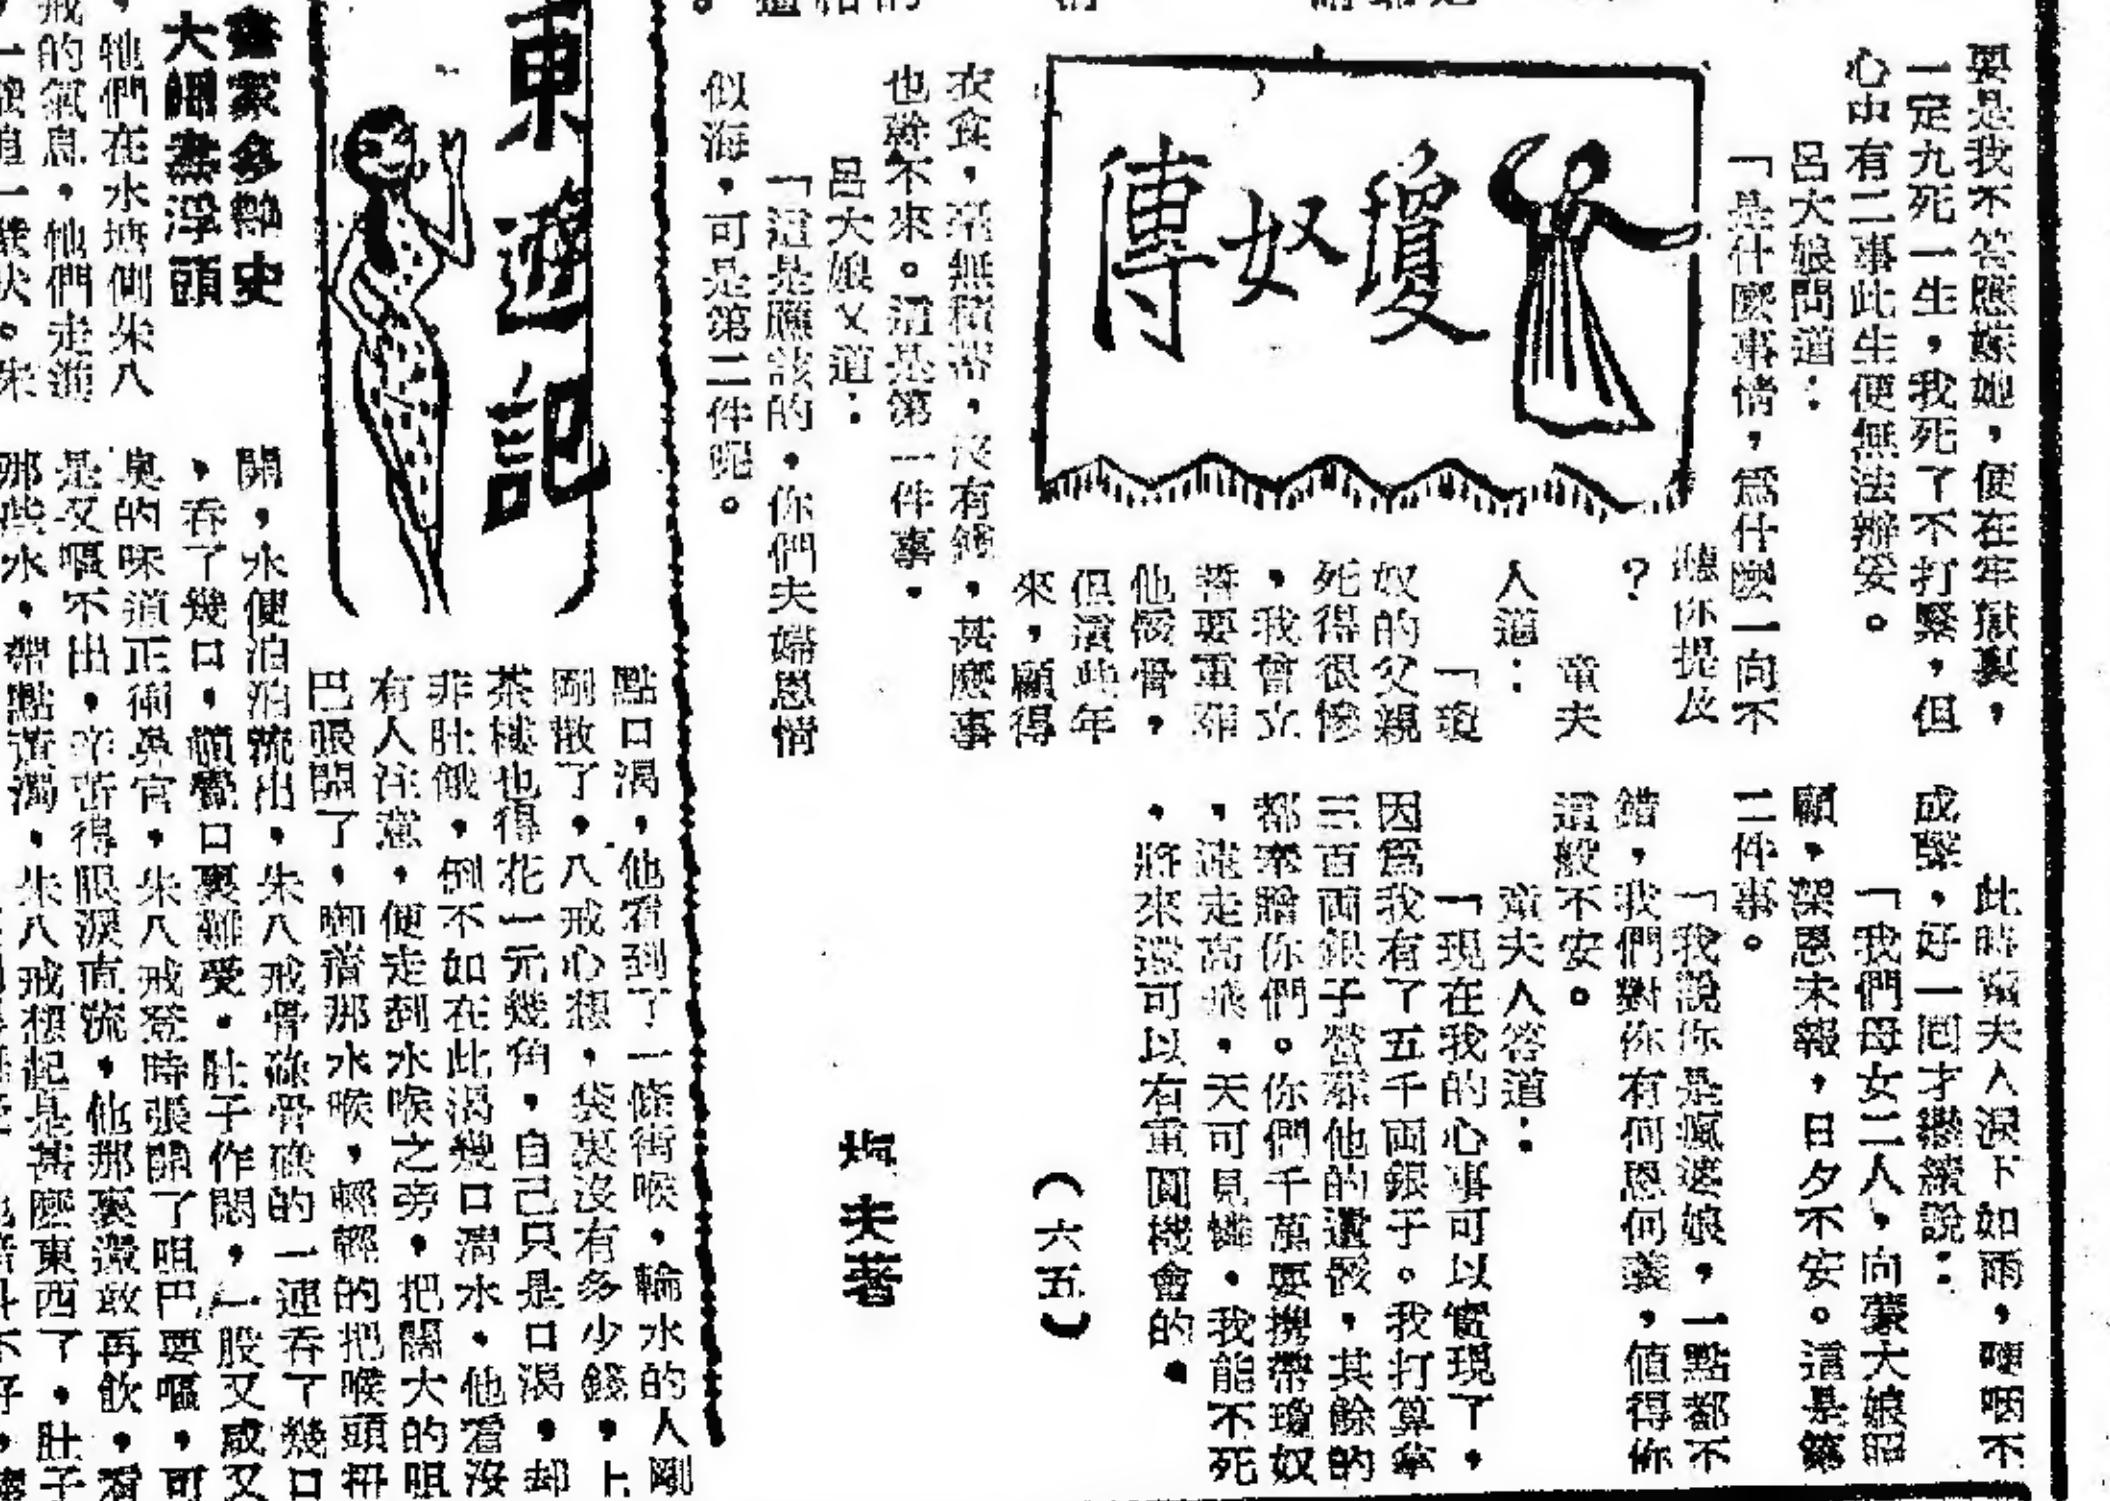 要是我不答應嫁她，便在牢獄裏，
一定九死一生，我死了不打緊，但
心中有二事此生便無法辦妥。
呂大娘問道：
「是什麼事情，爲什麼一向不
聽你提及
？
童夫
人道：
「瓊
奴的父親
死得很慘
，我曾立
誓要重葬
他骸骨，
但這些年
來，顧得
衣食，毫無積蓄，沒有錢，甚麼事
也辦不來。這是第一件事。
呂大娘又道：
「這是應該的，你們夫婦恩情
似海，可是第二件呢。
瓊奴傳
塩夫著
（六五）
此時童夫人淚下如雨，哽咽不
成聲，好一回才繼續說：
「我們母女二人，向蒙大娘照
顧，深恩未報，日夕不安。這是第
二件事。
「我說你是瘋婆娘，一點都不
錯，我們對你有何恩何義，值得你
這般不安。
童夫人答道：
「現在我的心事可以實現了，
因爲我有了五千両銀子。我打算拿
三百両銀子營葬他的遺骸，其餘的
都奉贈你們。你們千萬要携帶瓊奴
，遠走高飛，天可見憐，我能不死
，將來還可以有重圓機會的。
東遊記
畫家多艷史
大鬧煮浮頭
點口渴，他看到了一條街喉，輪水的人剛
剛散了，八戒心想，袋裏沒有多少錢，上
茶樓也得花一元幾角，自己只是口渴，却
非肚餓，倒不如在此渴幾口淸水。他看沒
有人注意，便走到水喉之旁，把闊大的咀
巴張開了，啣着那水喉，輕輕的把喉頭扭
開，水便泊泊流出，朱八戒骨碌骨碌的一連吞了幾口
，吞了幾口，頓覺口裏難受，肚子作悶，一股又咸又
臭的味道正衝鼻官，朱八戒登時張開了咀巴要嘔，可
是又嘔不出，辛苦得眼淚直流，他那裏還敢再飲，看
那些水，帶點黃濁，朱八戒想起是甚麼東西了，肚子
，牠們在水塘側朱八
戒的氣息，牠們走進